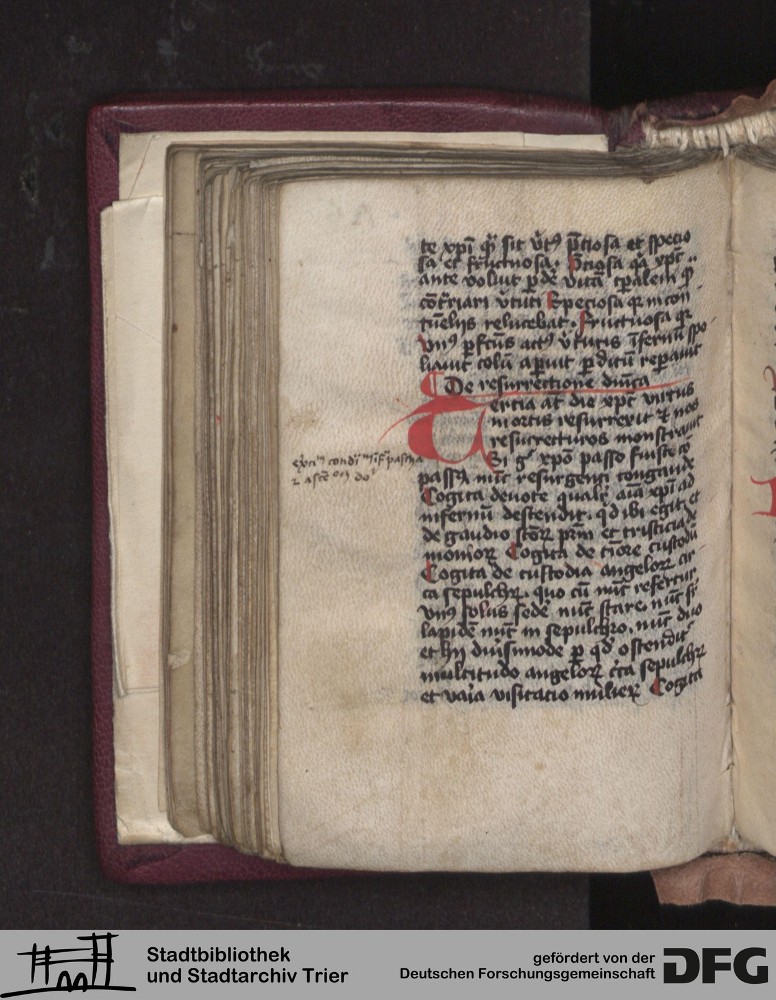 te xpī qͣ sit ūtꝰ p̄ciosa et specio
sa et fructuosa. p̄ciosa qꝛ xpc̄
ante voluit ꝑdē vitā tp̄alem qͣ
cōt̄riari v̄tuti Speciosa qꝛ in con
tūeliis relucebat. Fructuosa qꝛ
vnꝰ ꝑfcūs actꝰ v̄tutis īfernū spo
liauit celū aꝑuit ꝑditū reparauit
De resurrectione diuīa
Tercia at̄ die xpc̄ virtus
mortis resurrexit et nos
resurrecturos monstrauit
Si gͦ xpō passo fuisti cō
passꝰ nūc resurgenti congaude
Cogita deuote qualr̄ aīa xpī ad
infernū descendit. qͥd ibi egit et
de gaudio sc̄oꝝ pr̄m et tristicia de
monioꝝ Cogita de custodū
Cogita de custodia angeloꝝ cir
ca sepulchꝝ. quo cū nūc refertur
vnꝰ solus sede nūc stare. nūc sr̄
lapidē nūc in sepulchro. nūc duo
et hii diuersimode ꝑ qd̓ ostendit̉
multitudo angeloꝝ cͥca sepulchꝝ
et vaͥa visitacio mulieꝝ Cogita
pascha
Stadtbibliothek
und Stadtarchiv Trier
gefördert von der
Deutschen Forschungsgemeinschaft
DFG